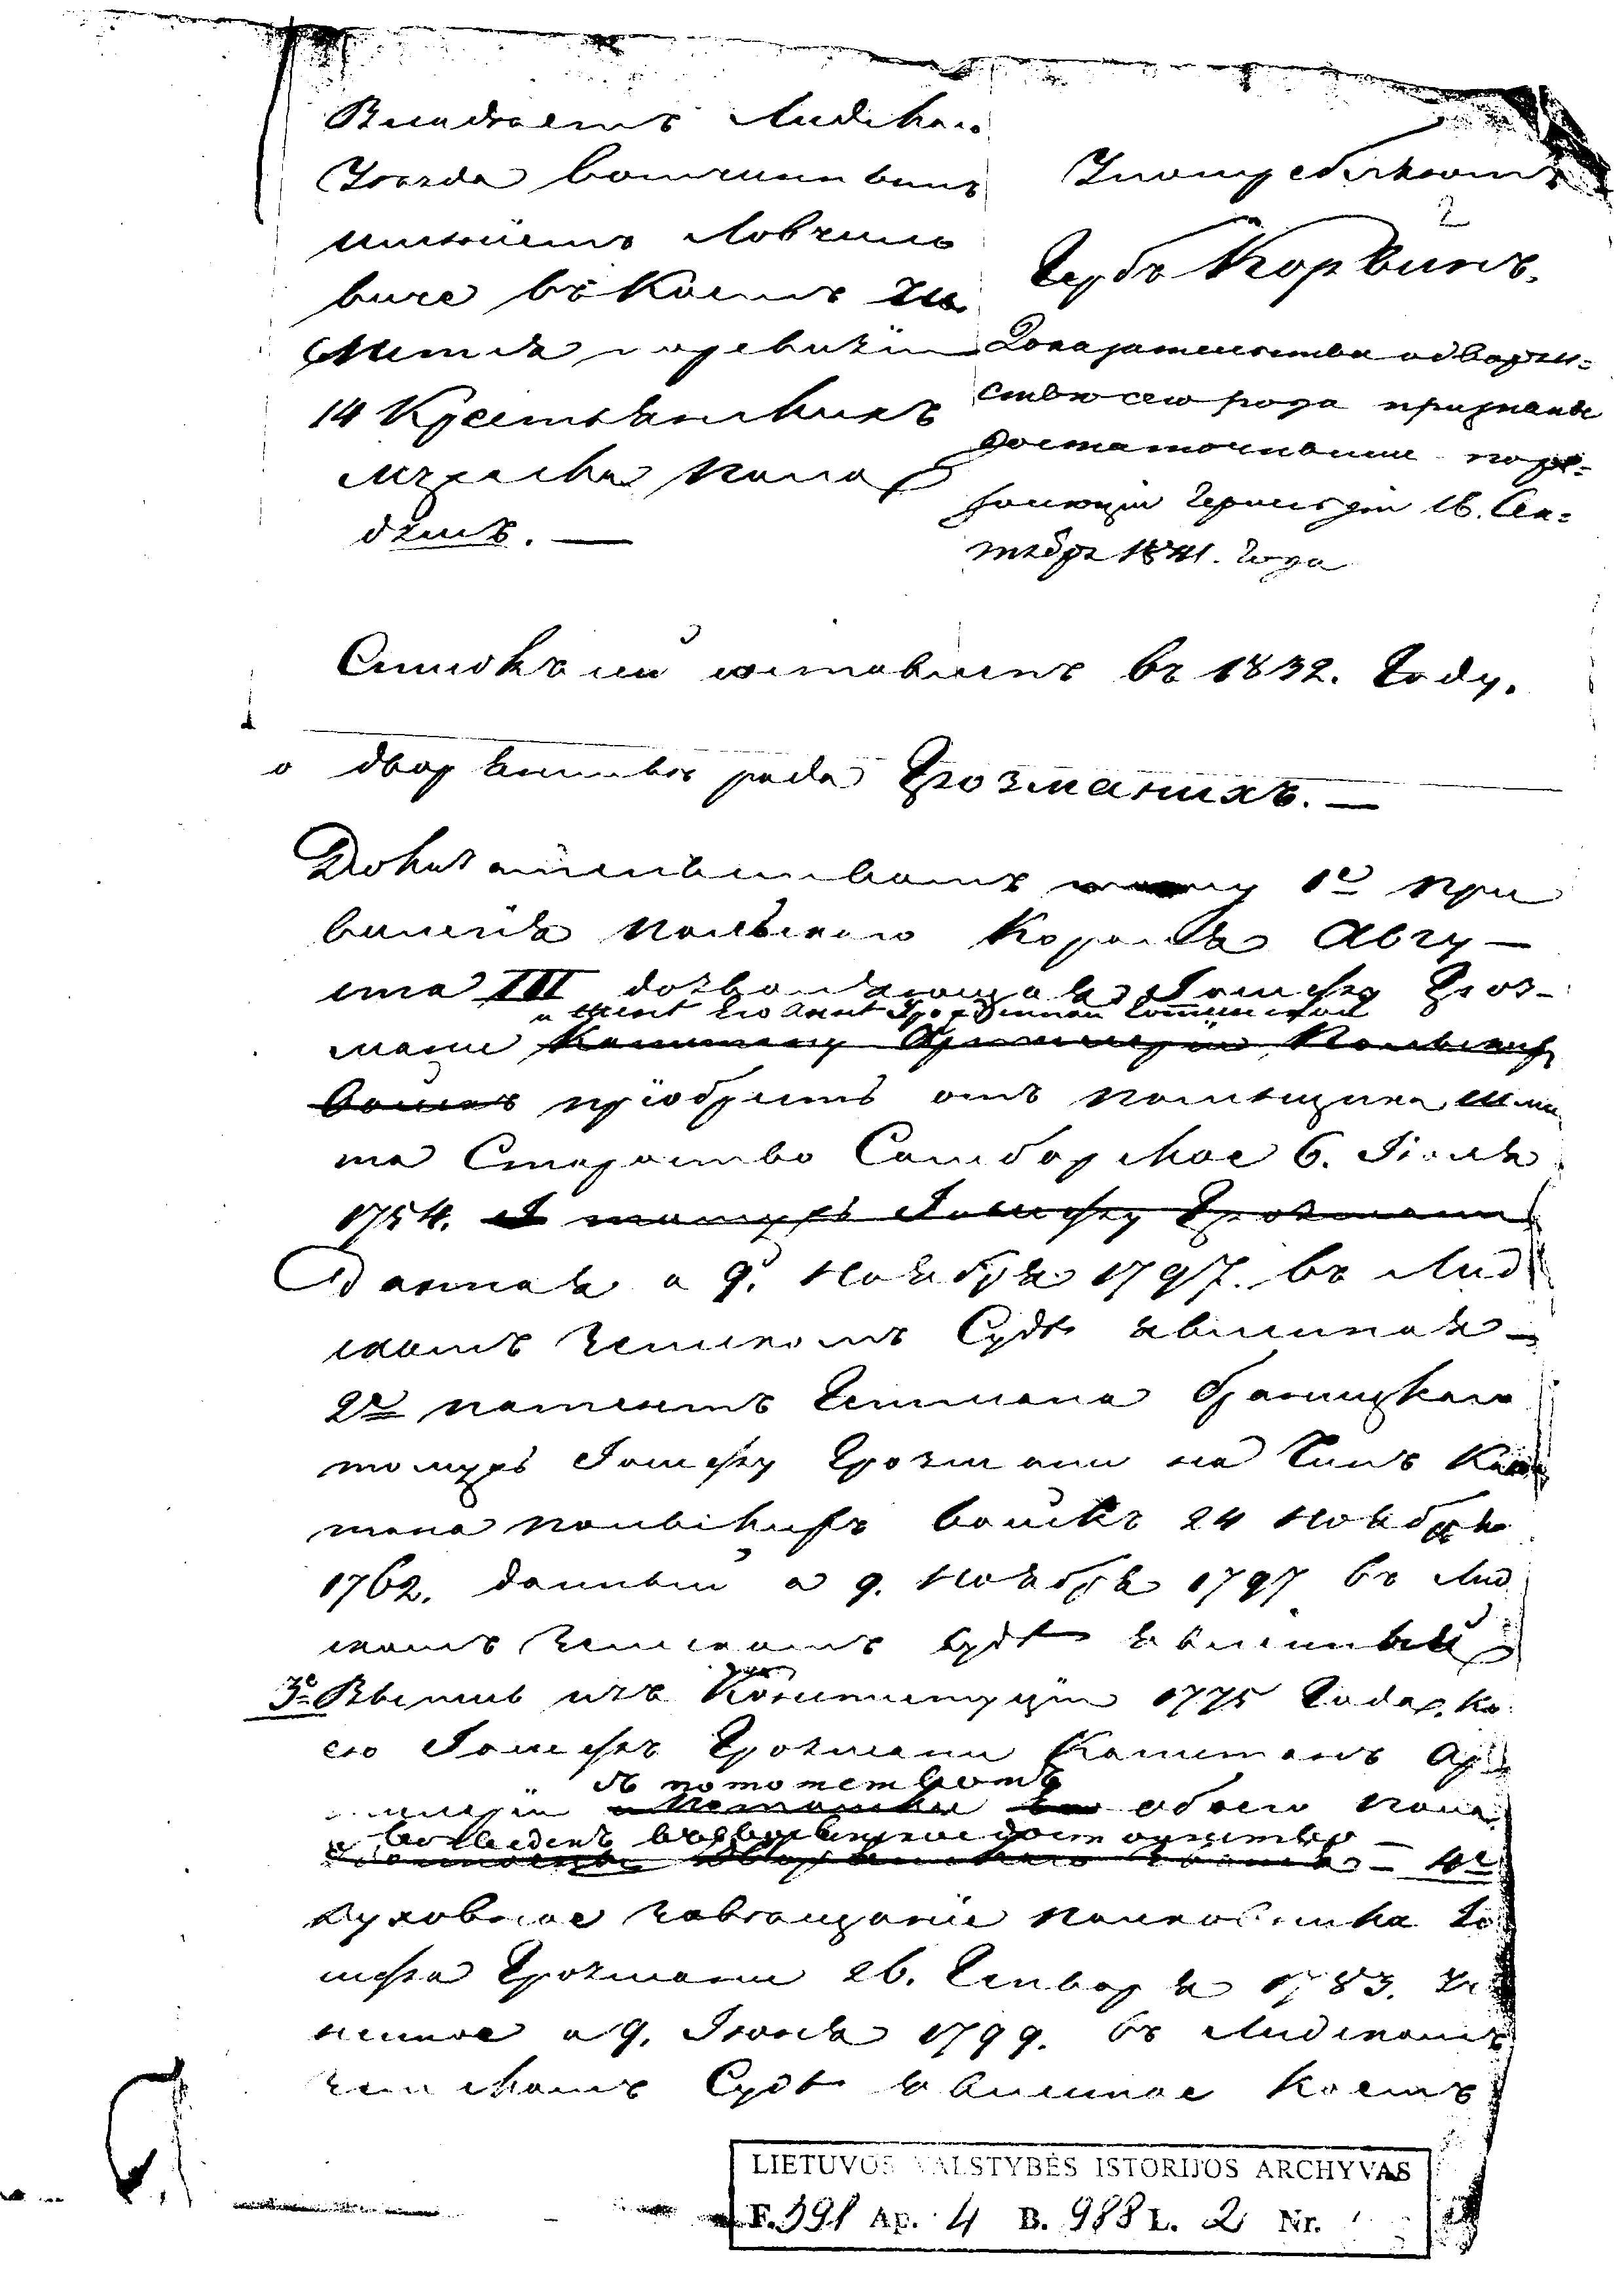 Владѣетъ Лидскаго
Уѣзда вотчиннымъ
имѣніемъ Ловчило
виче въ коемъ по
ревизіи
14 Крестьянскихъ
мужеска пола
душъ. —
Употребляютъ
2
Гербъ Корвинъ.
Доказательства о дворян=
ствѣ сего рода признаны
достаточными по ре=
золюціи Герольдіи 16. Сен=
тября 1841. Года
Списокъ сей составленъ въ 1832. Году.
о дворянствѣ рода Грозманихъ. —
Доказательствомъ тому 1е При
вилегія польскаго Короля Авгу—
ста III дозволяющая Іосифу Гроз-
мани Капитану Артиллеріи Польскихъ
войскъ пріобрѣсть отъ помѣщика Шми
та Староство Самборское 6. Іюля
1754.
Данная а 9. Ноября 1797. въ Лид
скомъ Земскомъ Судѣ явленная —
2е патентъ Гетмана Браницкаго
томужъ Іосифу Грозмани на Чинъ Капи
тана польскихъ войскъ 24 Ноября
1762. данный а 9. Ноября 1797 въ Лид
скомъ Земскомъ Судѣ явленный
3е Выпись изъ Конституціи 1775 Года, ко
ею Іосифъ Грозмани Капитанъ Ар
тиллеріи съ потомствомъ обоего пола
возведенъ въ дворянское достоинство — 4е
духовное завѣщаніе полковника Іо
сифа Грозмани 26. Генваря 1783. Учи
ненное а 9. Іюня 1799. въ Лидскомъ
земскомъ Судѣ явленное коемъ
LIETUVOS VALSTYBĖS ISTORIJOS ARCHYVAS
F. 391 Ap. 4 B. 988 L. 2 Nr.